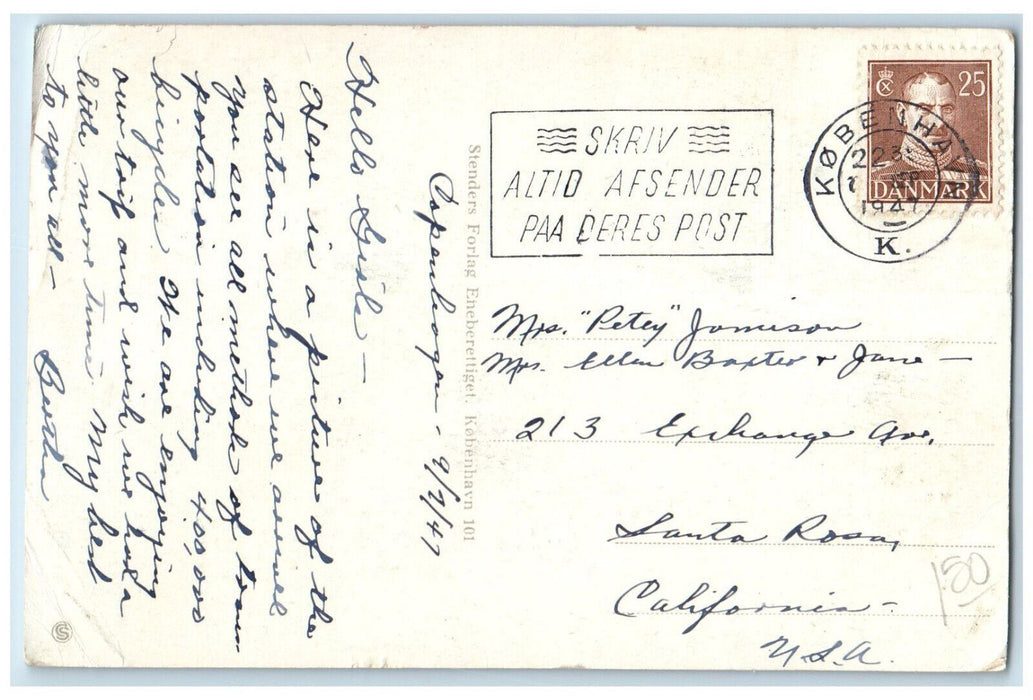 Copenhagen - 9/2/47
Hello Girls -
Here is a picture of the
station where we arrived
You see all methods of trans-
portation including 400,000
bicycles. We are enjoying
our trip and wish we had a
little more time. My best
to you all -
Bertha
Stenders Forlag Eneberettiget. København 101
SKRIV
ALTID AFSENDER
PAA DERES POST
KØBENHAVN
1947
K.
25
DANMARK
Mrs. "Petey" Jamison
Mrs. Ellen Baxter & Jane -
213 Exchange Ave.
Santa Rosa,
California -
U.S.A.
150